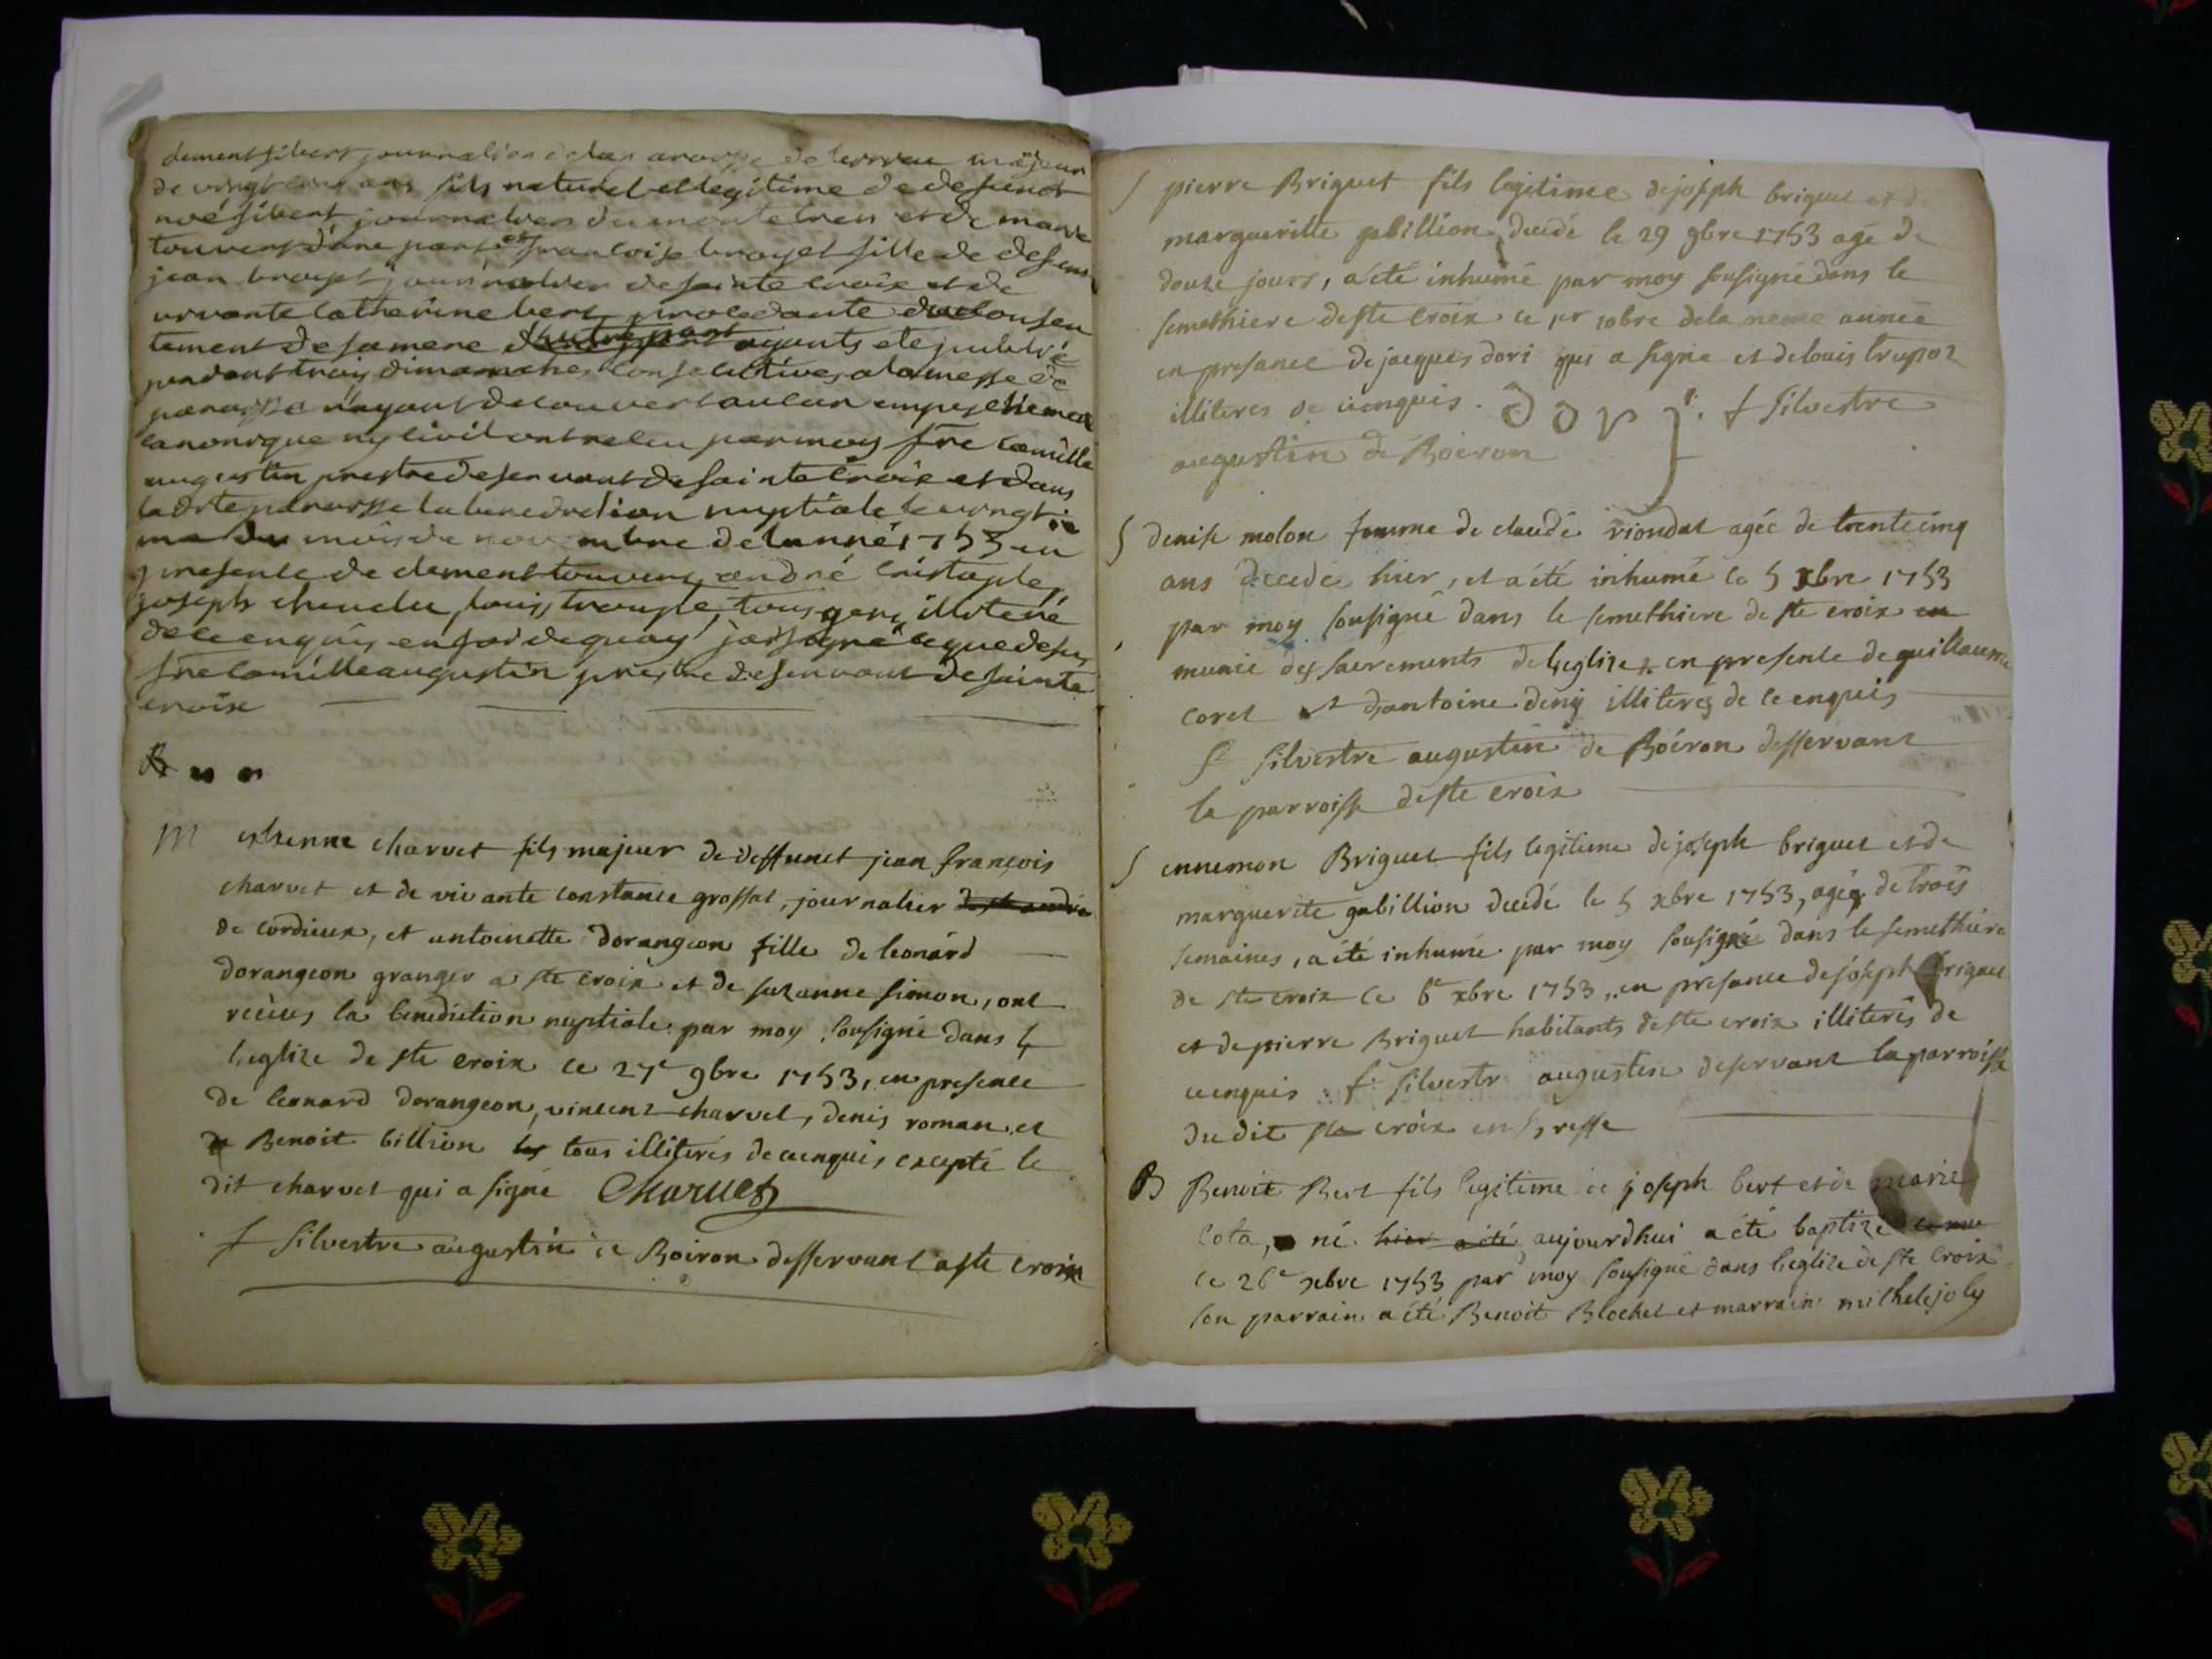 de vingt cinq ans fils naturel et legitime de defunct
noé sibert journalier du montelren et de marie
touvent d'une part et francoise broyet fille de defunt
jean broyet journalier de sainte croix et de
vivante catherine bert procedante du consen
tement de sa mere d'autre part ayants eté publié
pendant trois dimanches consecutives a la messe de
paroisse n'ayant decouvert aucun empeschemen
canonique ny civil ont receu par moy fre camille
augustin prestre deservant de sainte croix et dans
la dite paroisse la benediction nuptiale le vingt
du mois de novembre de l'anné 1753 en
presente de clement touvent andré
joseph louis tous gens illiteré
de ce enquis en foi de quoy jai signé ce que desus
fre camille augustin prestre deservant de sainte
croix
B
M estienne charvet fils majeur de deffunct jean françois
charvet et de vivante constance grossat, journalier de st andre
de cordieux, et antoinette dorangeon fille de leonard
dorangeon granger a ste croix et de suzanne simon, ont
reçeus la benediction nuptiale par moy sousigné dans
l'eglize de ste croix ce 27e 9bre 1753, en presence
de leonard dorangeon, vincent charvet, denis roman, et
de Benoit billion les tous illiterés de ce enquis excepté le
dit charvet qui a signé Charuet
f silvestre augustin de Boiron desservant a ste croix
S pierre Briguet fils legitime de joseph briguet et de
margueritte gabillion, decedé le 29 9bre 1753 agé de
douze jours, a été inhumé par moy sousigné dans le
semethiere de ste croix ce 1er 10bre de la meme année
en presance de jacques dori qui a signé et de louis trupoz
illiteres de ce enquis. Dory. f silvestre
augustin de Boiron
S denise molon femme de claude riondat agée de trente cinq
ans decedée hier, et a été inhumé le 5 xbre 1753
par moy sousigné dans le semethiere de ste croix en
munie des sacrements de l'eglize en presente de guillaume
coret et d'antoine deny illiterés de ce enquis
f silvestre augustin de Boiron desservant
la parroisse de ste croix
S ennemon Briguet fils legitime de joseph briguet et de
marguerite gabillion decedé le 5 xbre 1753, agée de trois
semaines, a été inhumé par moy sousigné dans le semethiere
de ste croix ce 6e xbre 1753, en presance de joseph briguet
et de pierre Briguet habitants de ste croix illiterés de
ce enquis f silvestre augustin deservant la parroisse
du dit ste croix en bresse
B Benoit Bert fils legitime de joseph bert et de marie
cota, né hier a été aujourdhui a été baptizé
ce 26e xbre 1753 par moy sousigné dans l'eglize de ste croix
son parrain a été Benoit Blochet et marraine michele joly